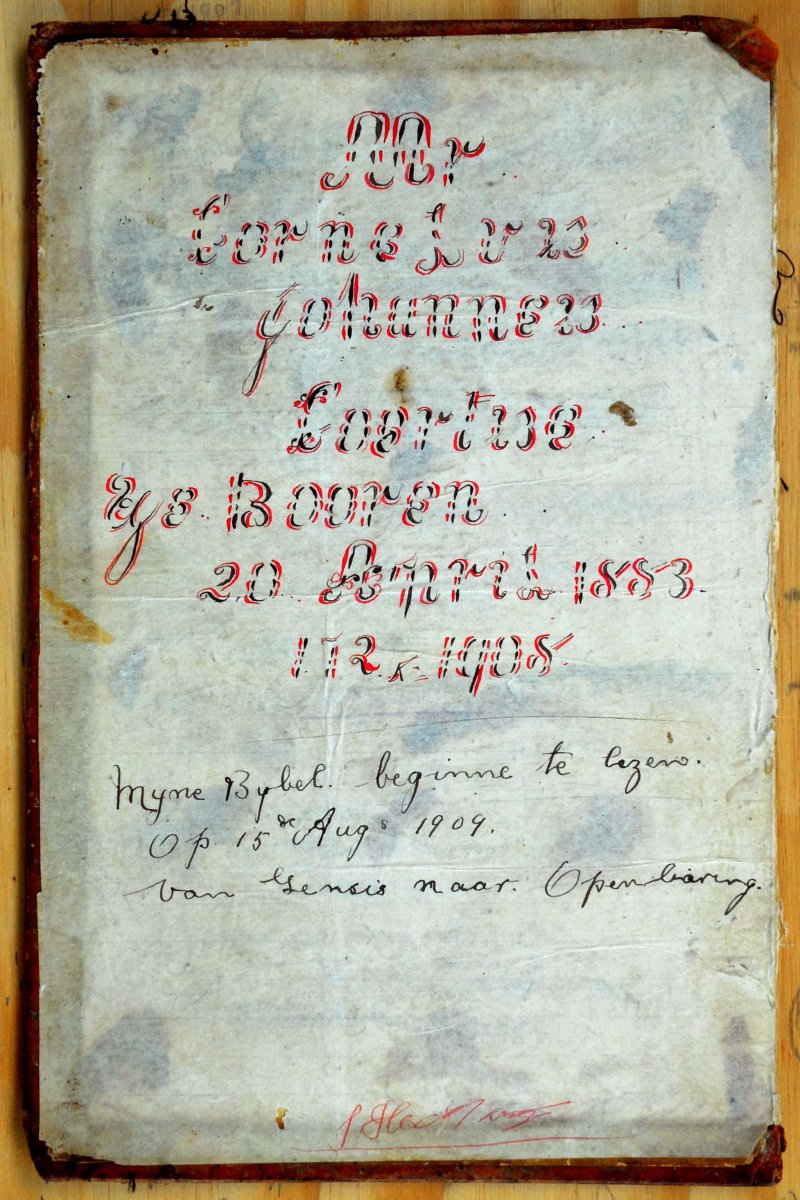 Mr
Cornelus
Johannes
Coertse
Ge Booren
20 April 1883.
1908
Myne Bybel. beginne te lezen.
Op 15de Augs 1909.
van Gensis naar. Openbaring.